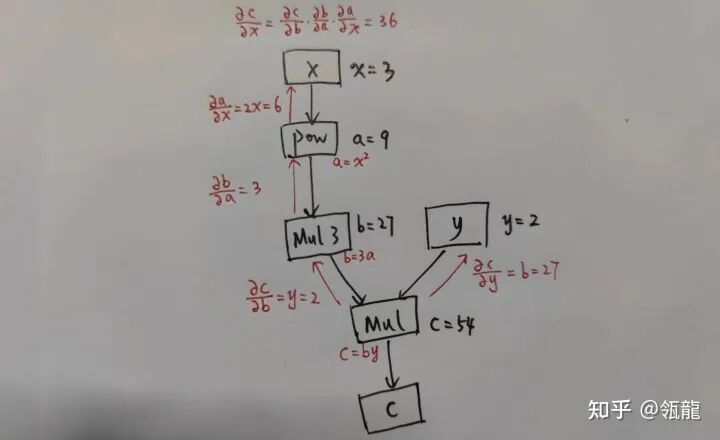 ∂c/∂x = ∂c/∂b · ∂b/∂a · ∂a/∂x = 36
x
x=3
∂a/∂x=2x=6
pow
a=9
a=x²
∂b/∂a = 3
Mul 3
b=27
b=3a
y
y=2
∂c/∂b=y=2
∂c/∂y=b=27
Mul
C=54
C=by
C
知乎 @瓴龍